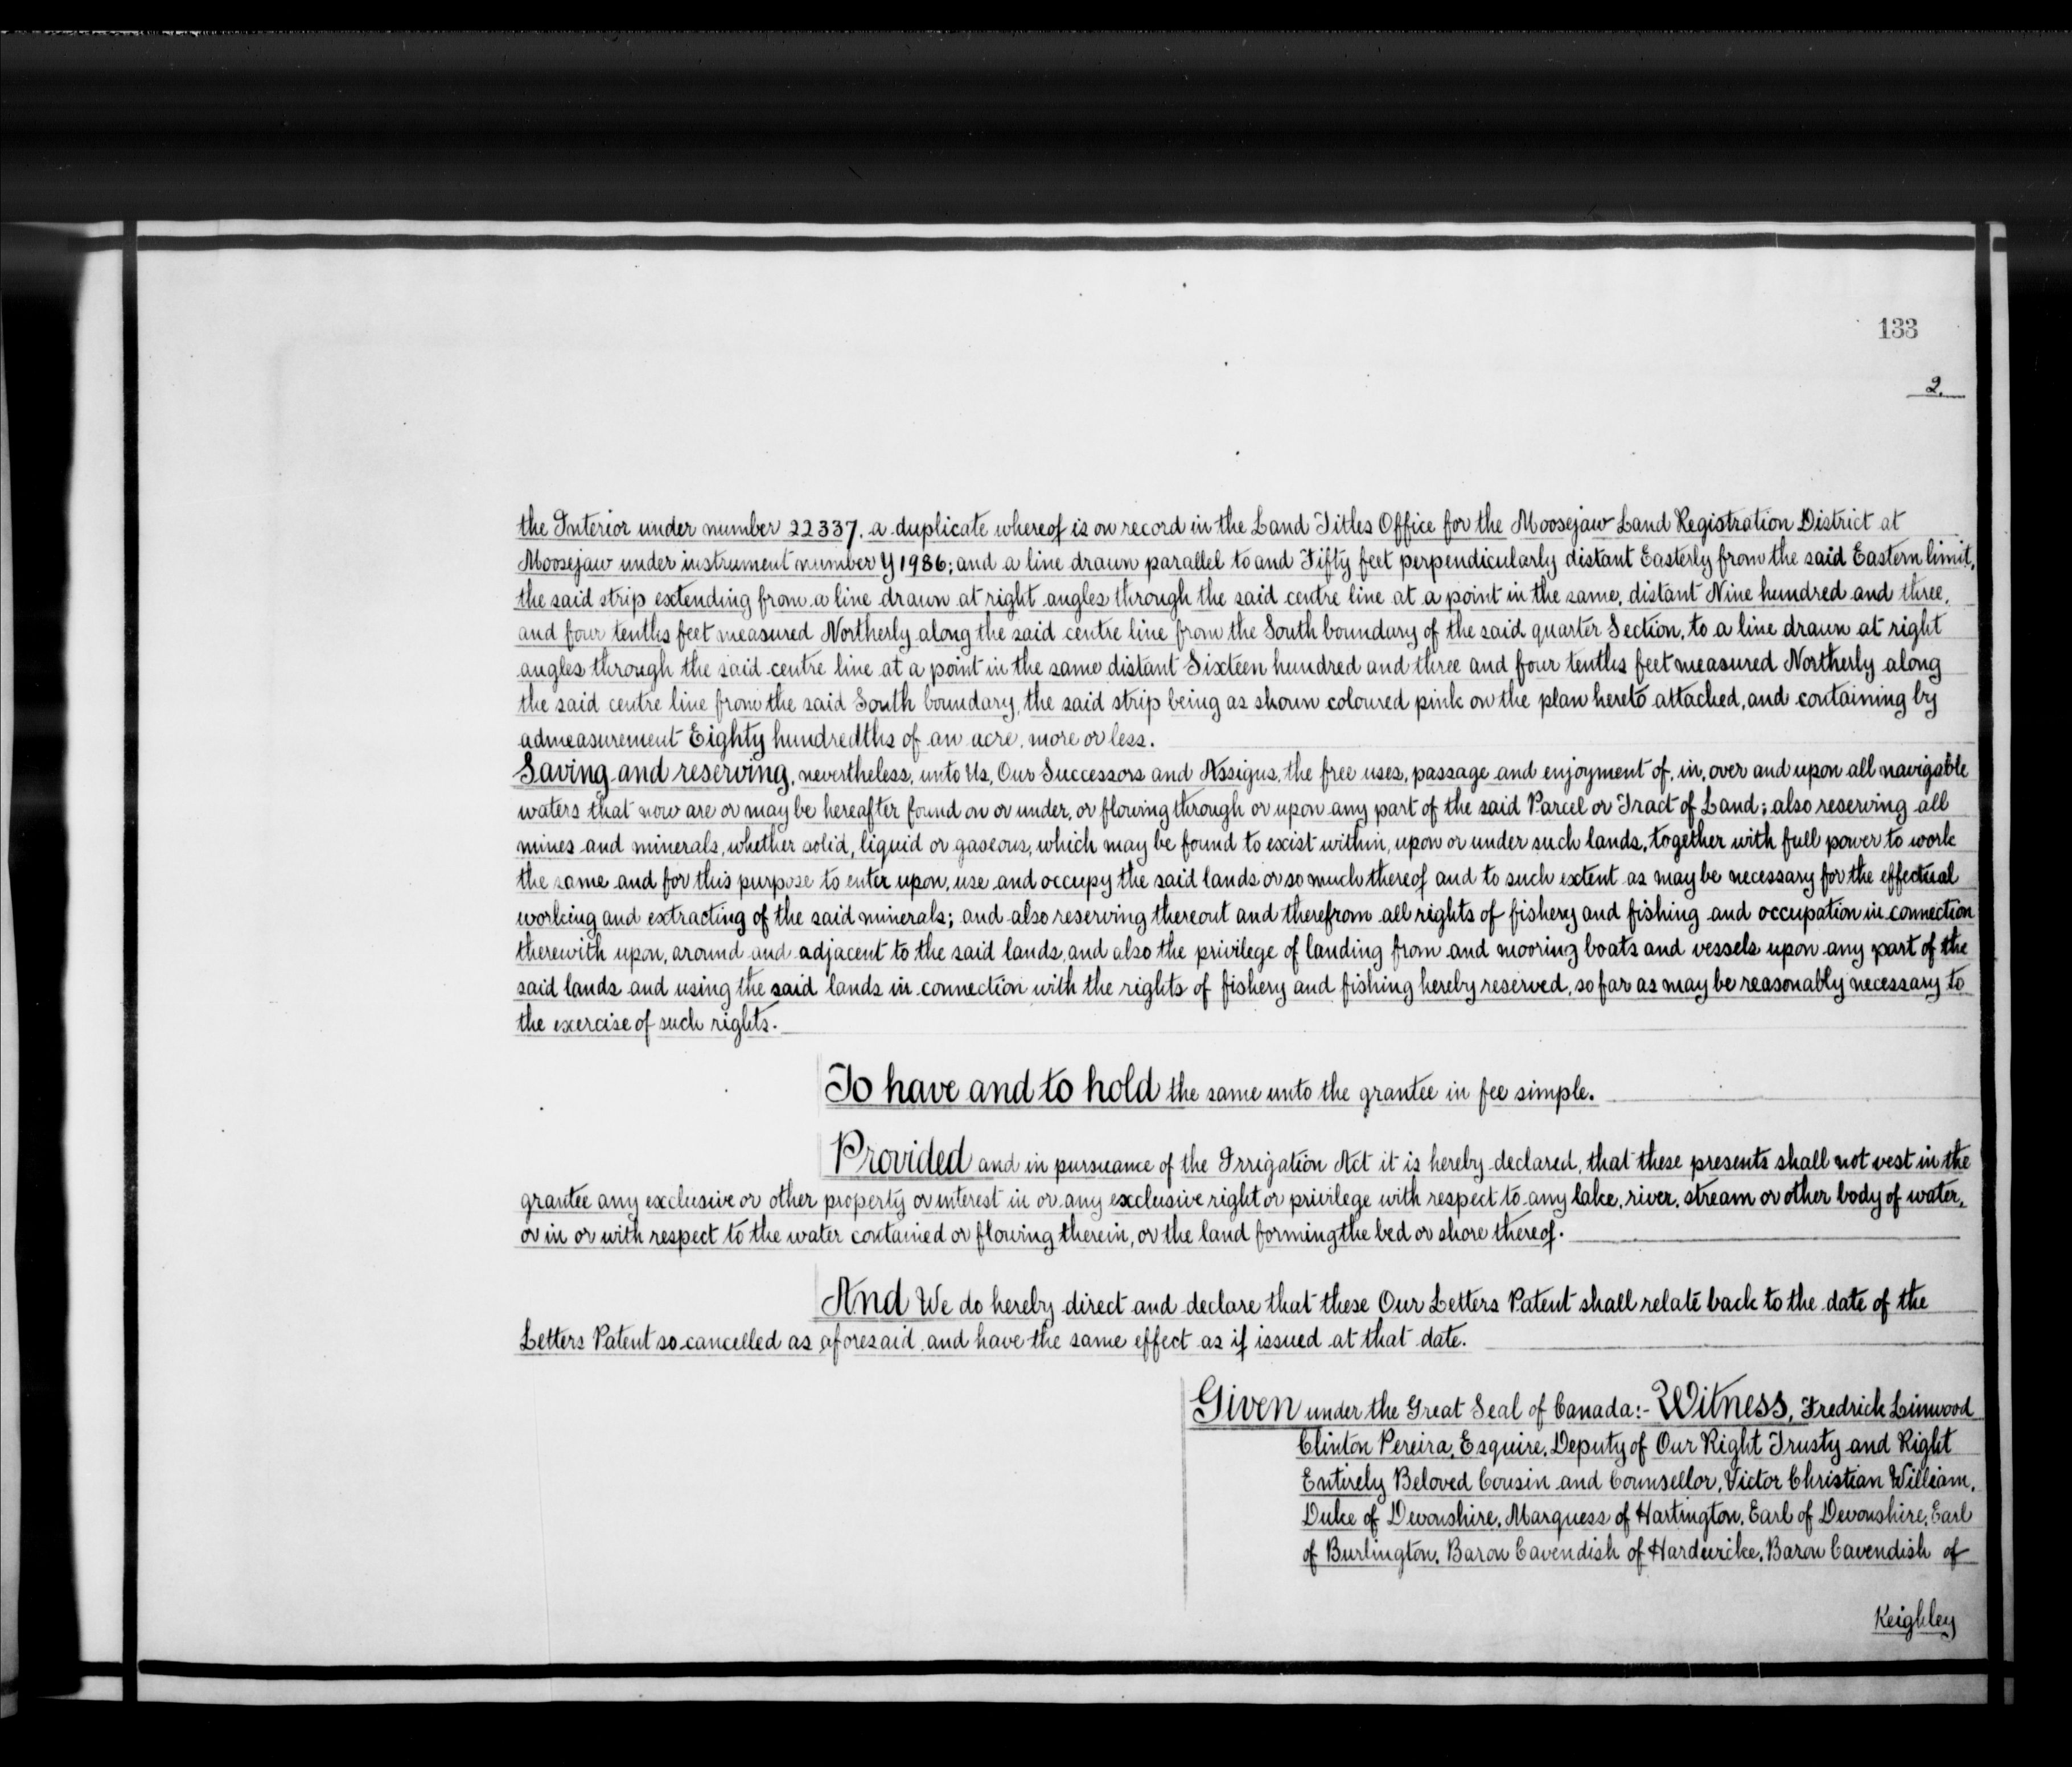 133
2.
the Interior under number 22337, a duplicate whereof is on record in the Land Titles Office for the Moosejaw Land Registration District at
Moosejaw under instrument number Y 1986; and a line drawn parallel to and Fifty feet perpendicularly distant Easterly from the said Eastern limit,
the said strip extending from a line drawn at right angles through the said centre line at a point in the same, distant Nine hundred and three,
and four tenths feet measured Northerly along the said centre line from the South boundary of the said quarter Section, to a line drawn at right
angles through the said centre line at a point in the same distant Sixteen hundred and three and four tenths feet measured Northerly along
the said centre line from the said South boundary, the said strip being as shown coloured pink on the plan hereto attached, and containing by
admeasurement Eighty hundredths of an acre, more or less.
Saving and reserving, nevertheless, unto Us, Our Successors and Assigns, the free uses, passage and enjoyment of, in, over and upon all navigable
waters that now are or may be hereafter found on or under, or flowing through or upon any part of the said Parcel or Tract of Land; also reserving all
mines and minerals, whether solid, liquid or gaseous, which may be found to exist within, upon or under such lands, together with full power to work
the same and for this purpose to enter upon, use and occupy the said lands or so much thereof and to such extent as may be necessary for the effectual
working and extracting of the said minerals; and also reserving thereout and therefrom all rights of fishery and fishing and occupation in connection
therewith upon, around and adjacent to the said lands, and also the privilege of landing from and mooring boats and vessels upon any part of the
said lands and using the said lands in connection with the rights of fishery and fishing hereby reserved, so far as may be reasonably necessary to
the exercise of such rights.
To have and to hold the same unto the grantee in fee simple.
Provided and in pursuance of the Irrigation Act it is hereby declared, that these presents shall not vest in the
grantee any exclusive or other property or interest in or any exclusive right or privilege with respect to any lake, river, stream or other body of water,
or in or with respect to the water contained or flowing therein, or the land forming the bed or shore thereof.
And We do hereby direct and declare that these Our Letters Patent shall relate back to the date of the
Letters Patent so cancelled as aforesaid and have the same effect as if issued at that date.
Given under the Great Seal of Canada:- Witness, Fredrick Linwood
Clinton Pereira, Esquire, Deputy of Our Right Trusty and Right
Entirely Beloved Cousin and Counsellor, Victor Christian William,
Duke of Devonshire, Marquess of Hartington, Earl of Devonshire, Earl
of Burlington, Baron Cavendish of Hardwicke, Baron Cavendish of
Keighley